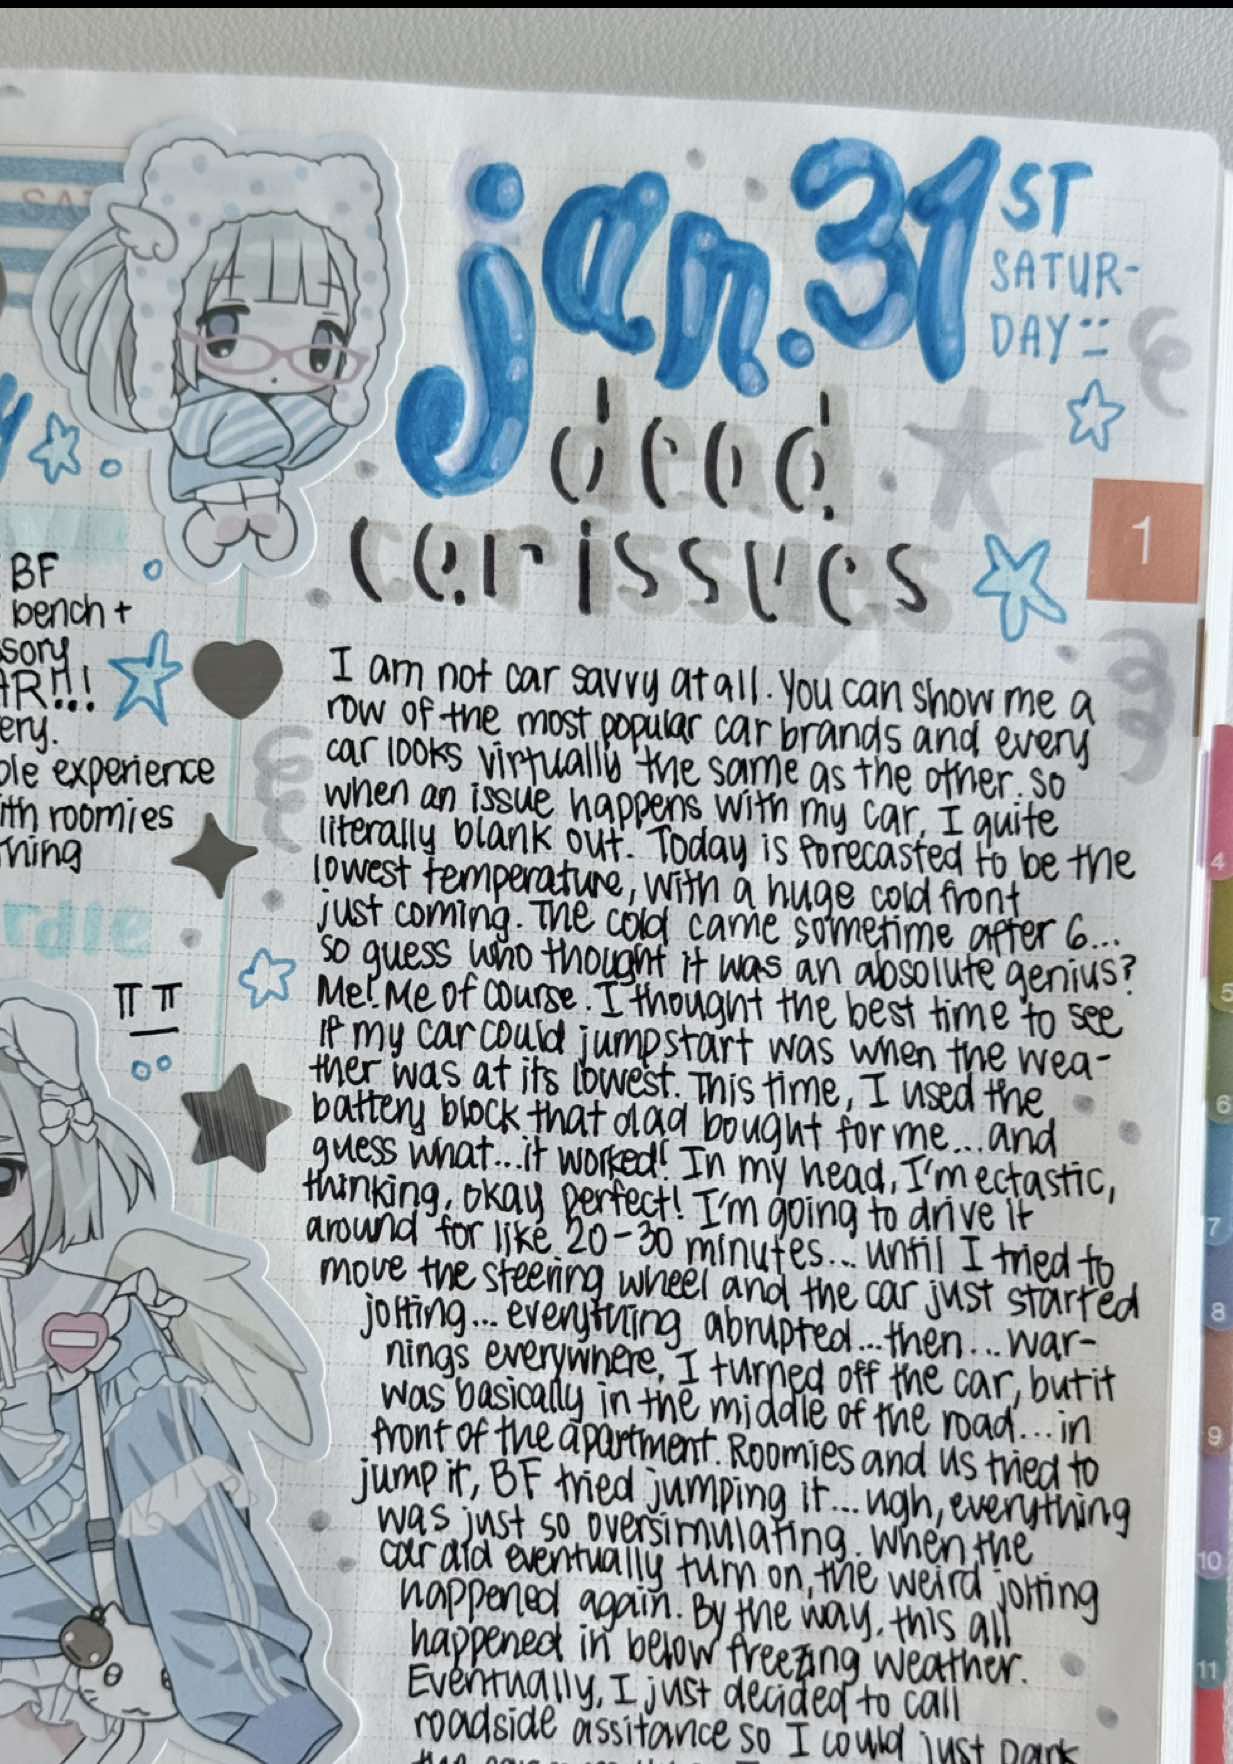 SAT
jan. 31ST
SATUR-
DAY
dead
car issues
1
BF
bench +
sory
ery.
ble experience
ith roomies
rdle
I am not car savvy at all. You can show me a
row of the most popular car brands and every
car looks virtually the same as the other. so
when an issue happens with my car, I quite
literally blank out. Today is forecasted to be the
lowest temperature, with a huge cold front
just coming. The cold came sometime after 6...
so guess who thought it was an absolute genius?
Me! Me of course. I thought the best time to see
if my car could jumpstart was when the wea-
ther was at its lowest. This time, I used the
battery block that dad bought for me...and
guess what...it worked! In my head, I'm ectastic,
thinking, okay perfect! I'm going to drive it
around for like 20-30 minutes... until I tried to
move the steering wheel and the car just started
jolting... everything abrupted...then...war-
nings everywhere. I turned off the car, but it
was basically in the middle of the road...in
front of the apartment. Roomies and us tried to
jump it, BF tried jumping it...ugh, everything
was just so oversimulating. When the
car did eventually turn on, the weird jolting
happened again. By the way, this all
happened in below freezing weather.
Eventually, I just decided to call
roadside assitance so I could just park
4
5
6
7
8
9
10
11